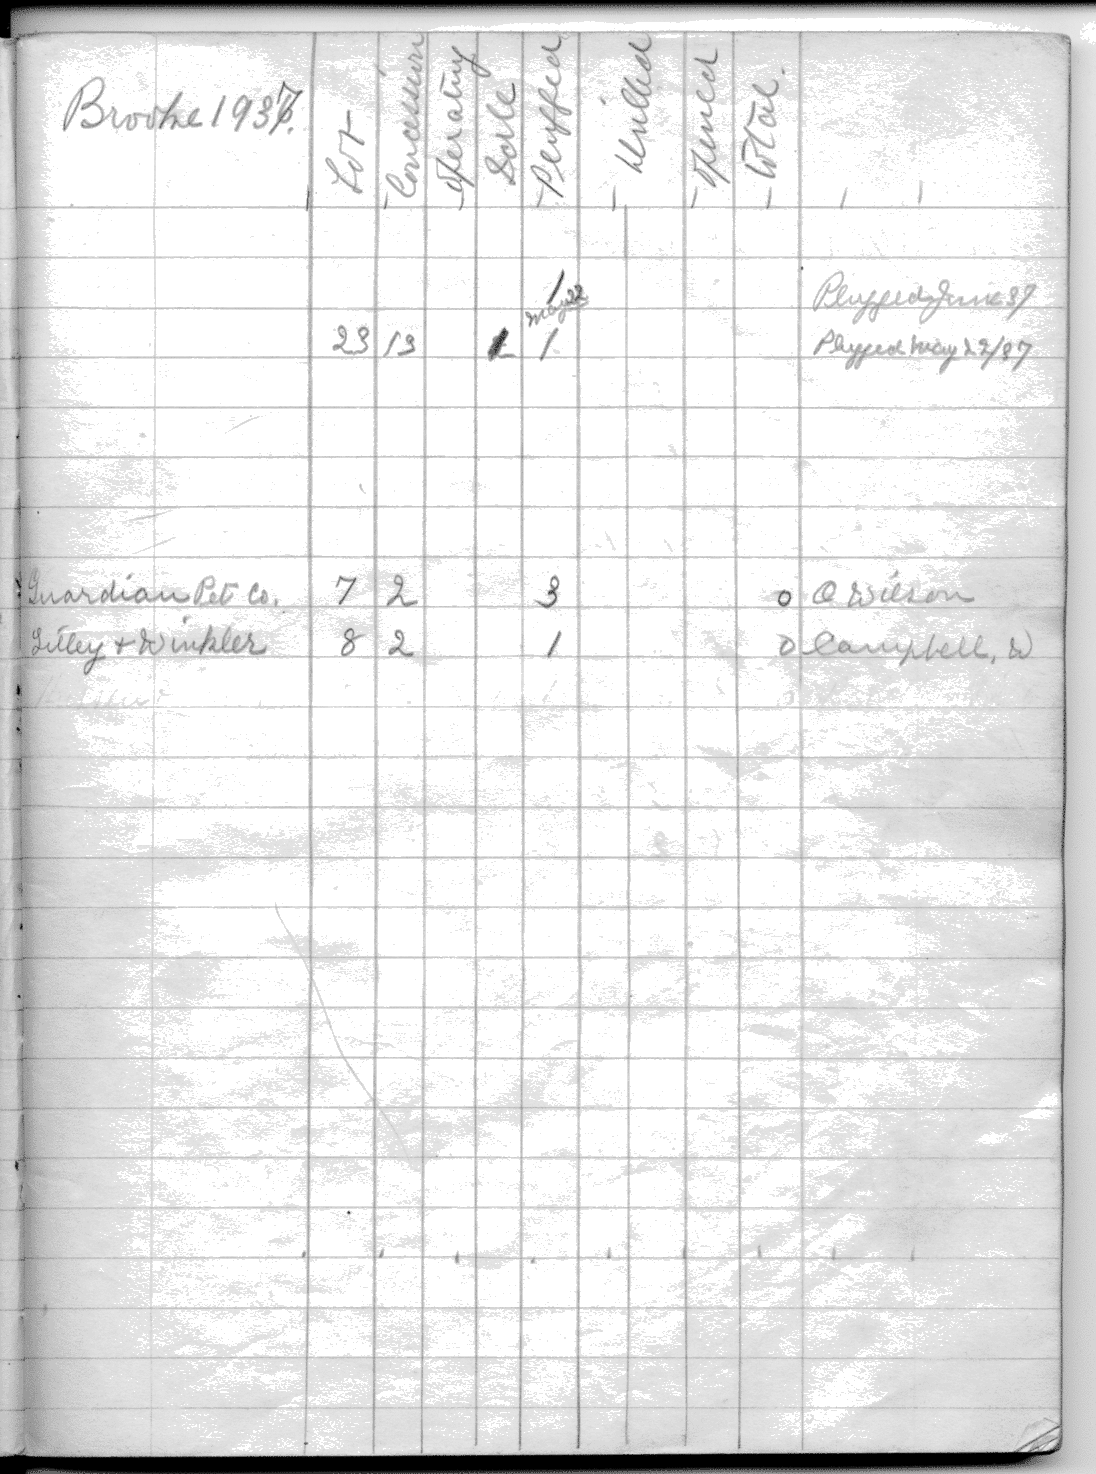 Brooke 1937.
Lot Concession operating Idle Plugged Drilled opened total.
1 Plugged June 37
May 22
23 13 1 1 Plugged May 22/37
Guardian Pet Co. 7 2 3 0 O Wilson
Lilley + Winkler 8 2 1 0 Campbell, W